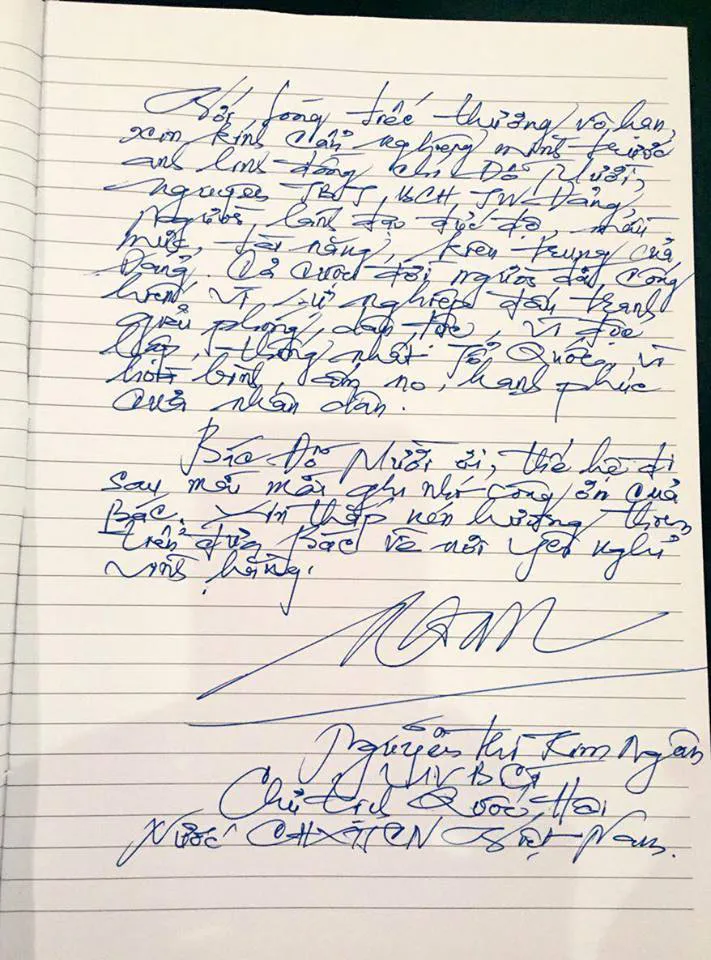 Với lòng tiếc thương vô hạn,
xin kính cẩn nghiêng mình trước
anh linh đồng chí Đỗ Mười,
nguyên TBT, BCH TW Đảng,
Người lãnh đạo đức độ, mẫu
mực, tài năng, kiên trung của
Đảng. Cả cuộc đời người đã cống
hiến vì sự nghiệp đấu tranh
giải phóng dân tộc, vì độc
lập, thống nhất Tổ Quốc, vì
hòa bình, ấm no, hạnh phúc
của nhân dân.
Bác Đỗ Mười ơi, thế hệ đi
sau mãi mãi ghi nhớ công ơn của
Bác. Xin thắp nén hương thơm
tiễn đưa Bác về nơi yên nghỉ
vĩnh hằng.
Nguyễn Thị Kim Ngân
UVBCT
Chủ tịch Quốc Hội
Nước CHXHCN Việt Nam.